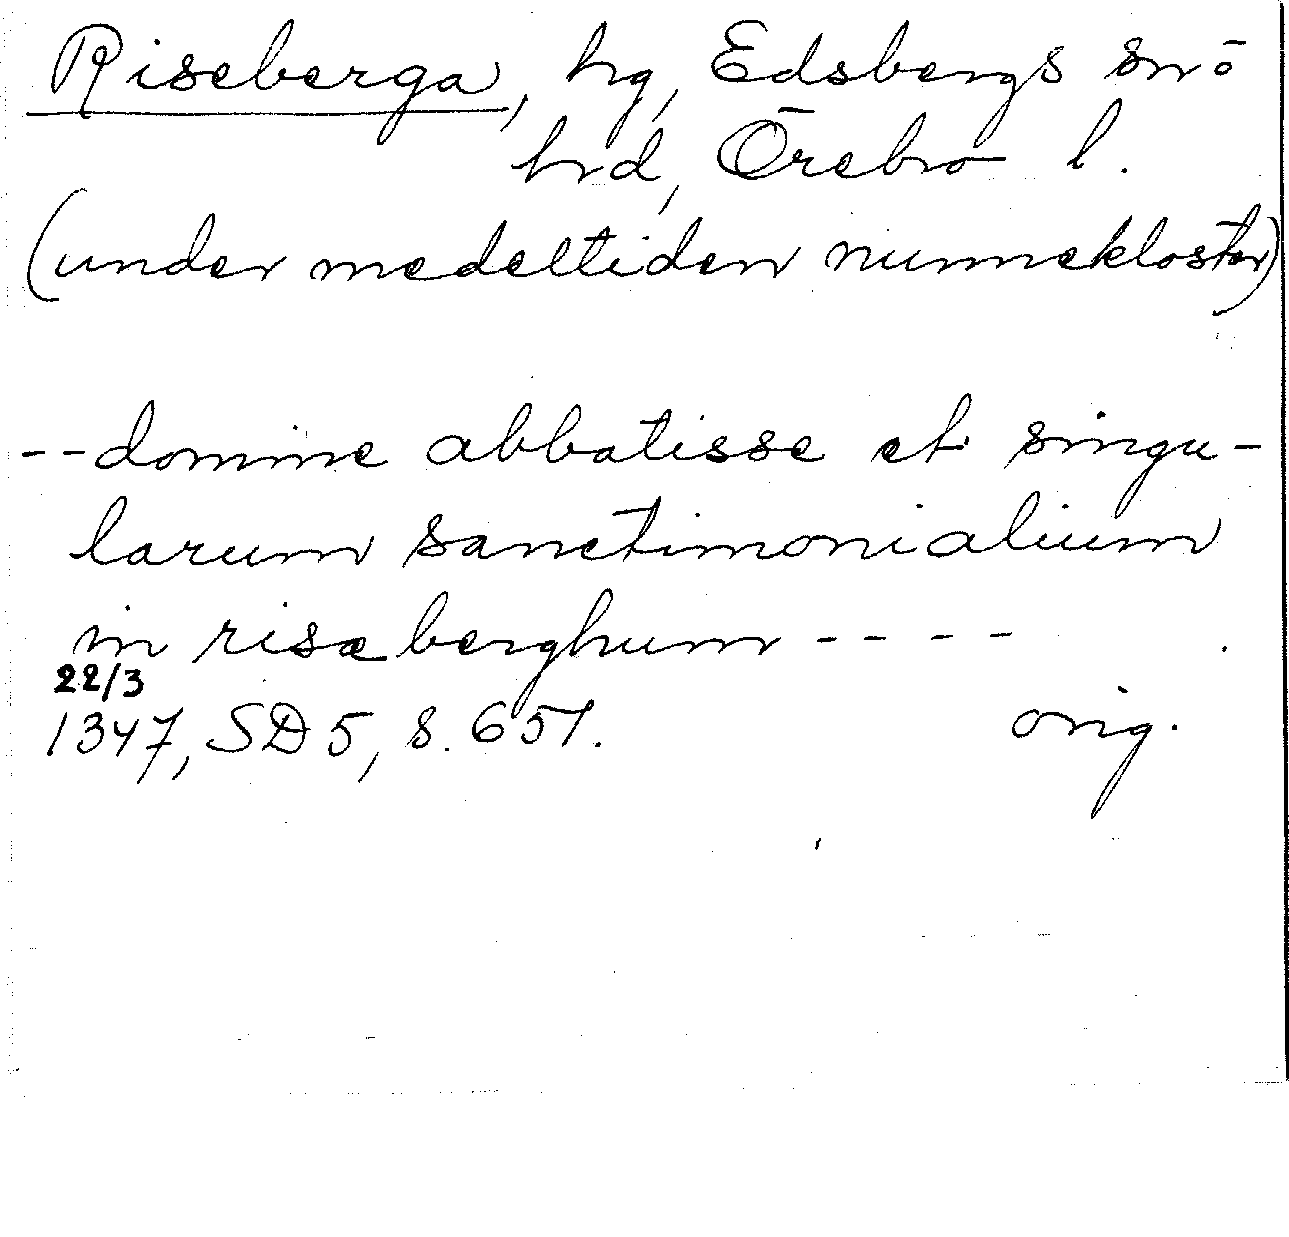 Riseberga, hg, Edsbergs sn o
hrd, Örebro l.
(under medeltiden nunnekloster)
--domine abbatisse et singu-
larum sanctimonialium
in risæberghum ----
22/3
1347, SD 5, s. 651. orig.